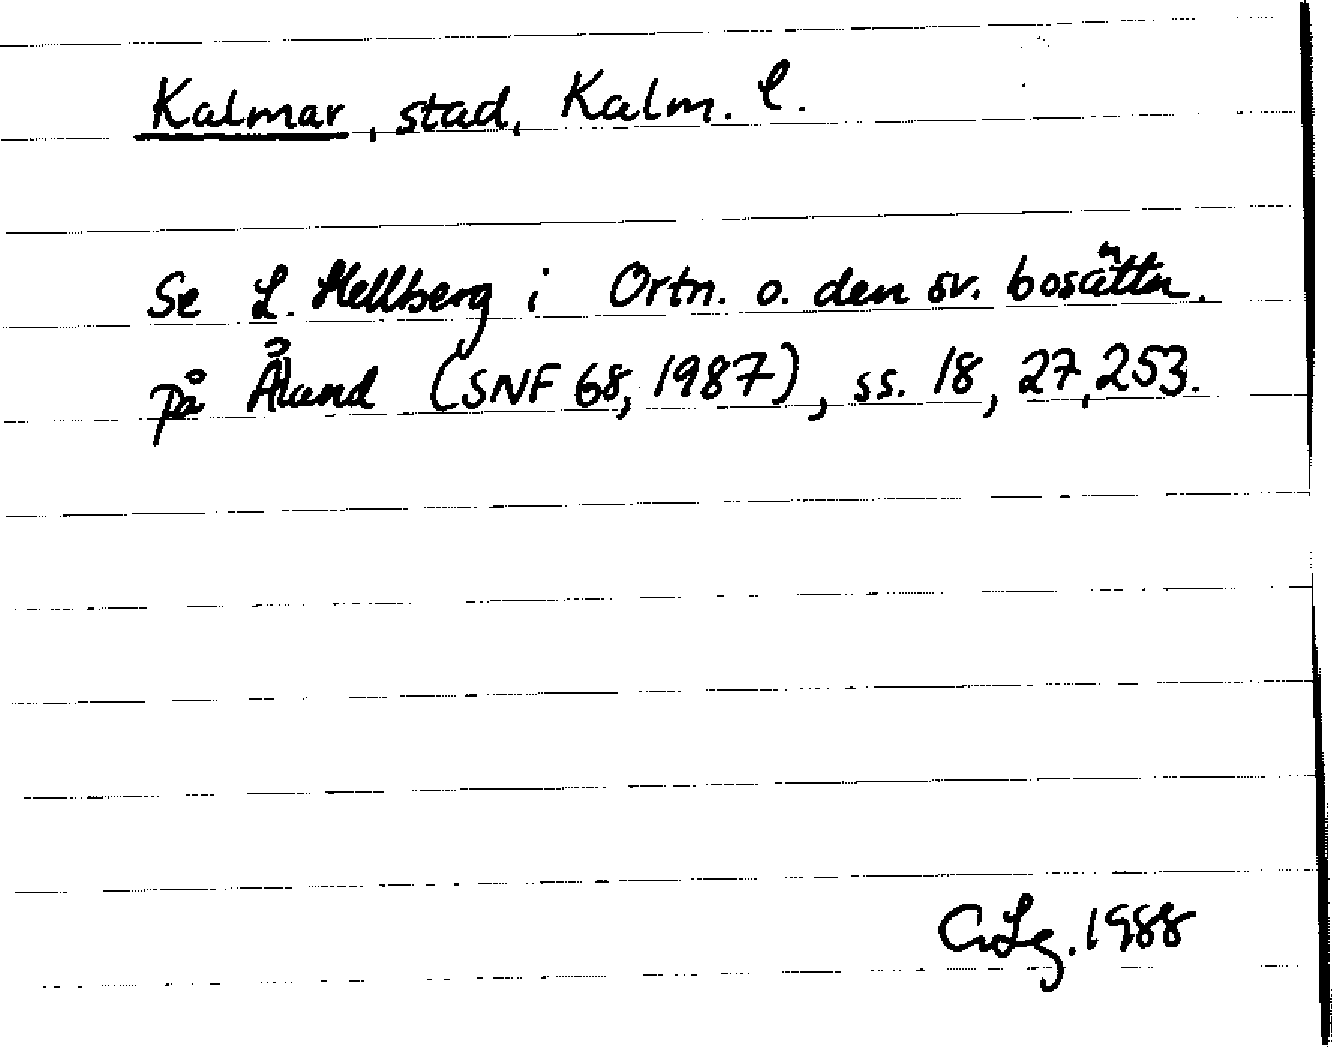 Kalmar, stad, Kalm. l.
Se L. Hellberg i Ortn. o. den sv. bosättn.
på Åland (SNF 68, 1987), ss. 18, 27, 253.
C.Lg. 1988